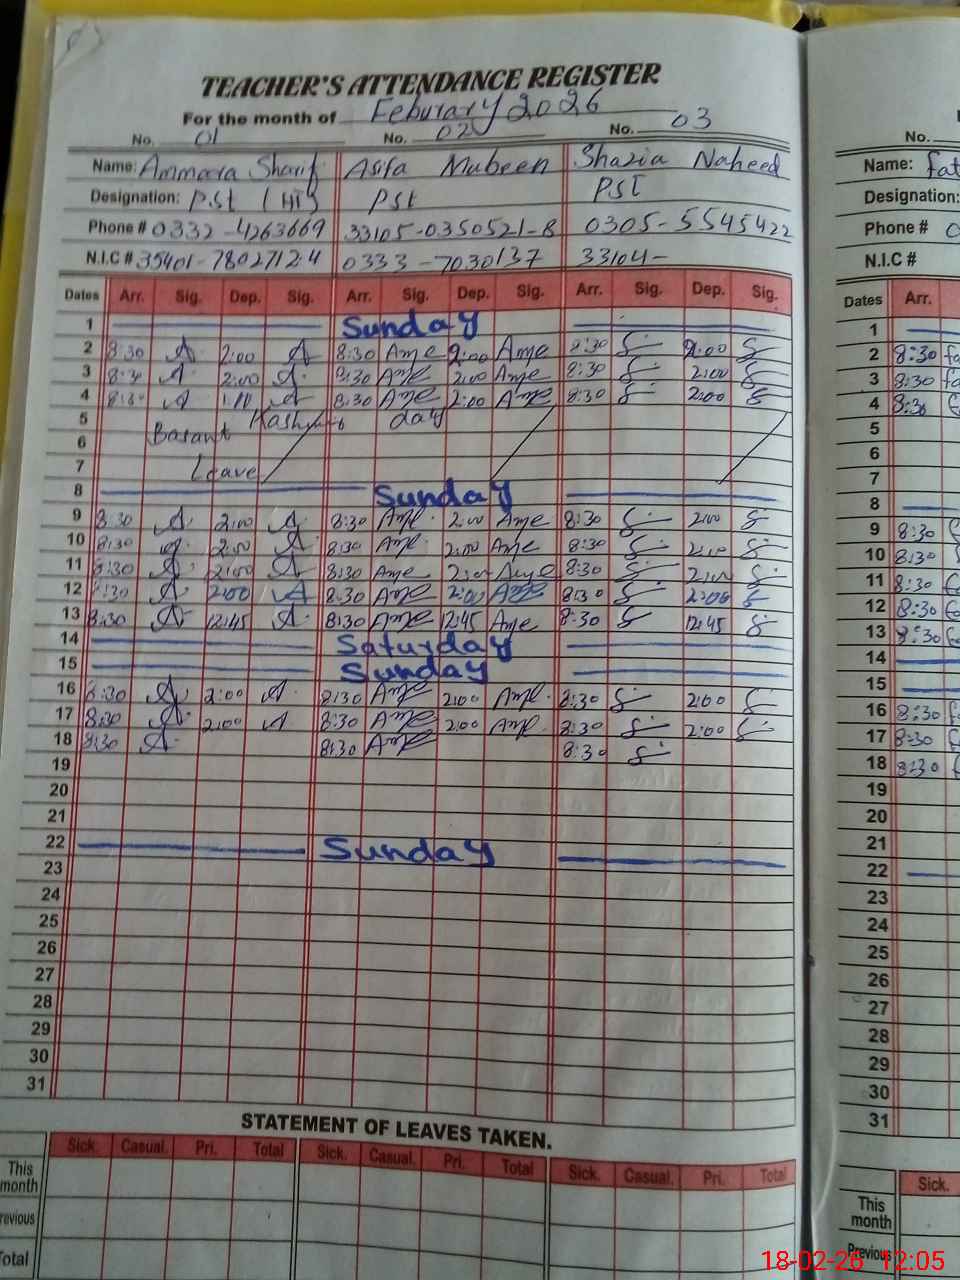 TEACHER'S ATTENDANCE REGISTER
For the month of Feburary 2026
No. 01 No. 02 No. 03
Name: Ammara Sharif Asifa Mubeen Shazia Naheed
Designation: P.St (HT) PSt PST
Phone # 0332-4263669 33105-0350521-8 0305-5545422
N.I.C # 35401-7802712-4 0333-7030137 33104-
Dates Arr. Sig. Dep. Sig. Arr. Sig. Dep. Sig. Arr. Sig. Dep. Sig.
1 Sunday
2 8:30 A 2:00 A 8:30 Ame 2:00 Ame 8:30 S 2:00 S
3 8:30 A 2:00 A 8:30 Ame 2:00 Ame 8:30 S 2:00 S
4 8:30 A A 8:30 Ame 2:00 Ame 8:30 S 2:00 S
5 Kashmir day
6 Basant
7 Leave
8 Sunday
9 8:30 A 2:00 A 8:30 Ame 2:00 Ame 8:30 S 2:00 S
10 8:30 2:00 A 8:30 Ame 2:00 Ame 8:30 S 2:00 S
11 8:30 A 2:00 A 8:30 Ame 2:00 Ame 8:30 S 2:00 S
12 8:30 A 2:00 A 8:30 Ame 2:00 Ame 8:30 S 2:00 S
13 8:30 A 12:45 A 8:30 Ame 12:45 Ame 8:30 S 12:45 S
14 Saturday
15 Sunday
16 8:30 A 2:00 A 8:30 Ame 2:00 Ame 8:30 S 2:00 S
17 8:30 A 2:00 A 8:30 Ame 2:00 Ame 8:30 S 2:00 S
18 8:30 A 8:30 Ame 8:30 S
19
20
21
22 Sunday
23
24
25
26
27
28
29
30
31
STATEMENT OF LEAVES TAKEN.
Sick. Casual. Pri. Total Sick. Casual. Pri. Total Sick. Casual. Pri. Total
This
month
Previous
Total
No.
Name:
Designation:
Phone #
N.I.C #
Dates Arr.
1
2 8:30
3 8:30
4 8:30
5
6
7
8
9 8:30
10 8:30
11 8:30
12 8:30
13 8:30
14
15
16 8:30
17 8:30
18 8:30
19
20
21
22
23
24
25
26
27
28
29
30
31
Sick.
This
month
Previous
18-02-26 12:05